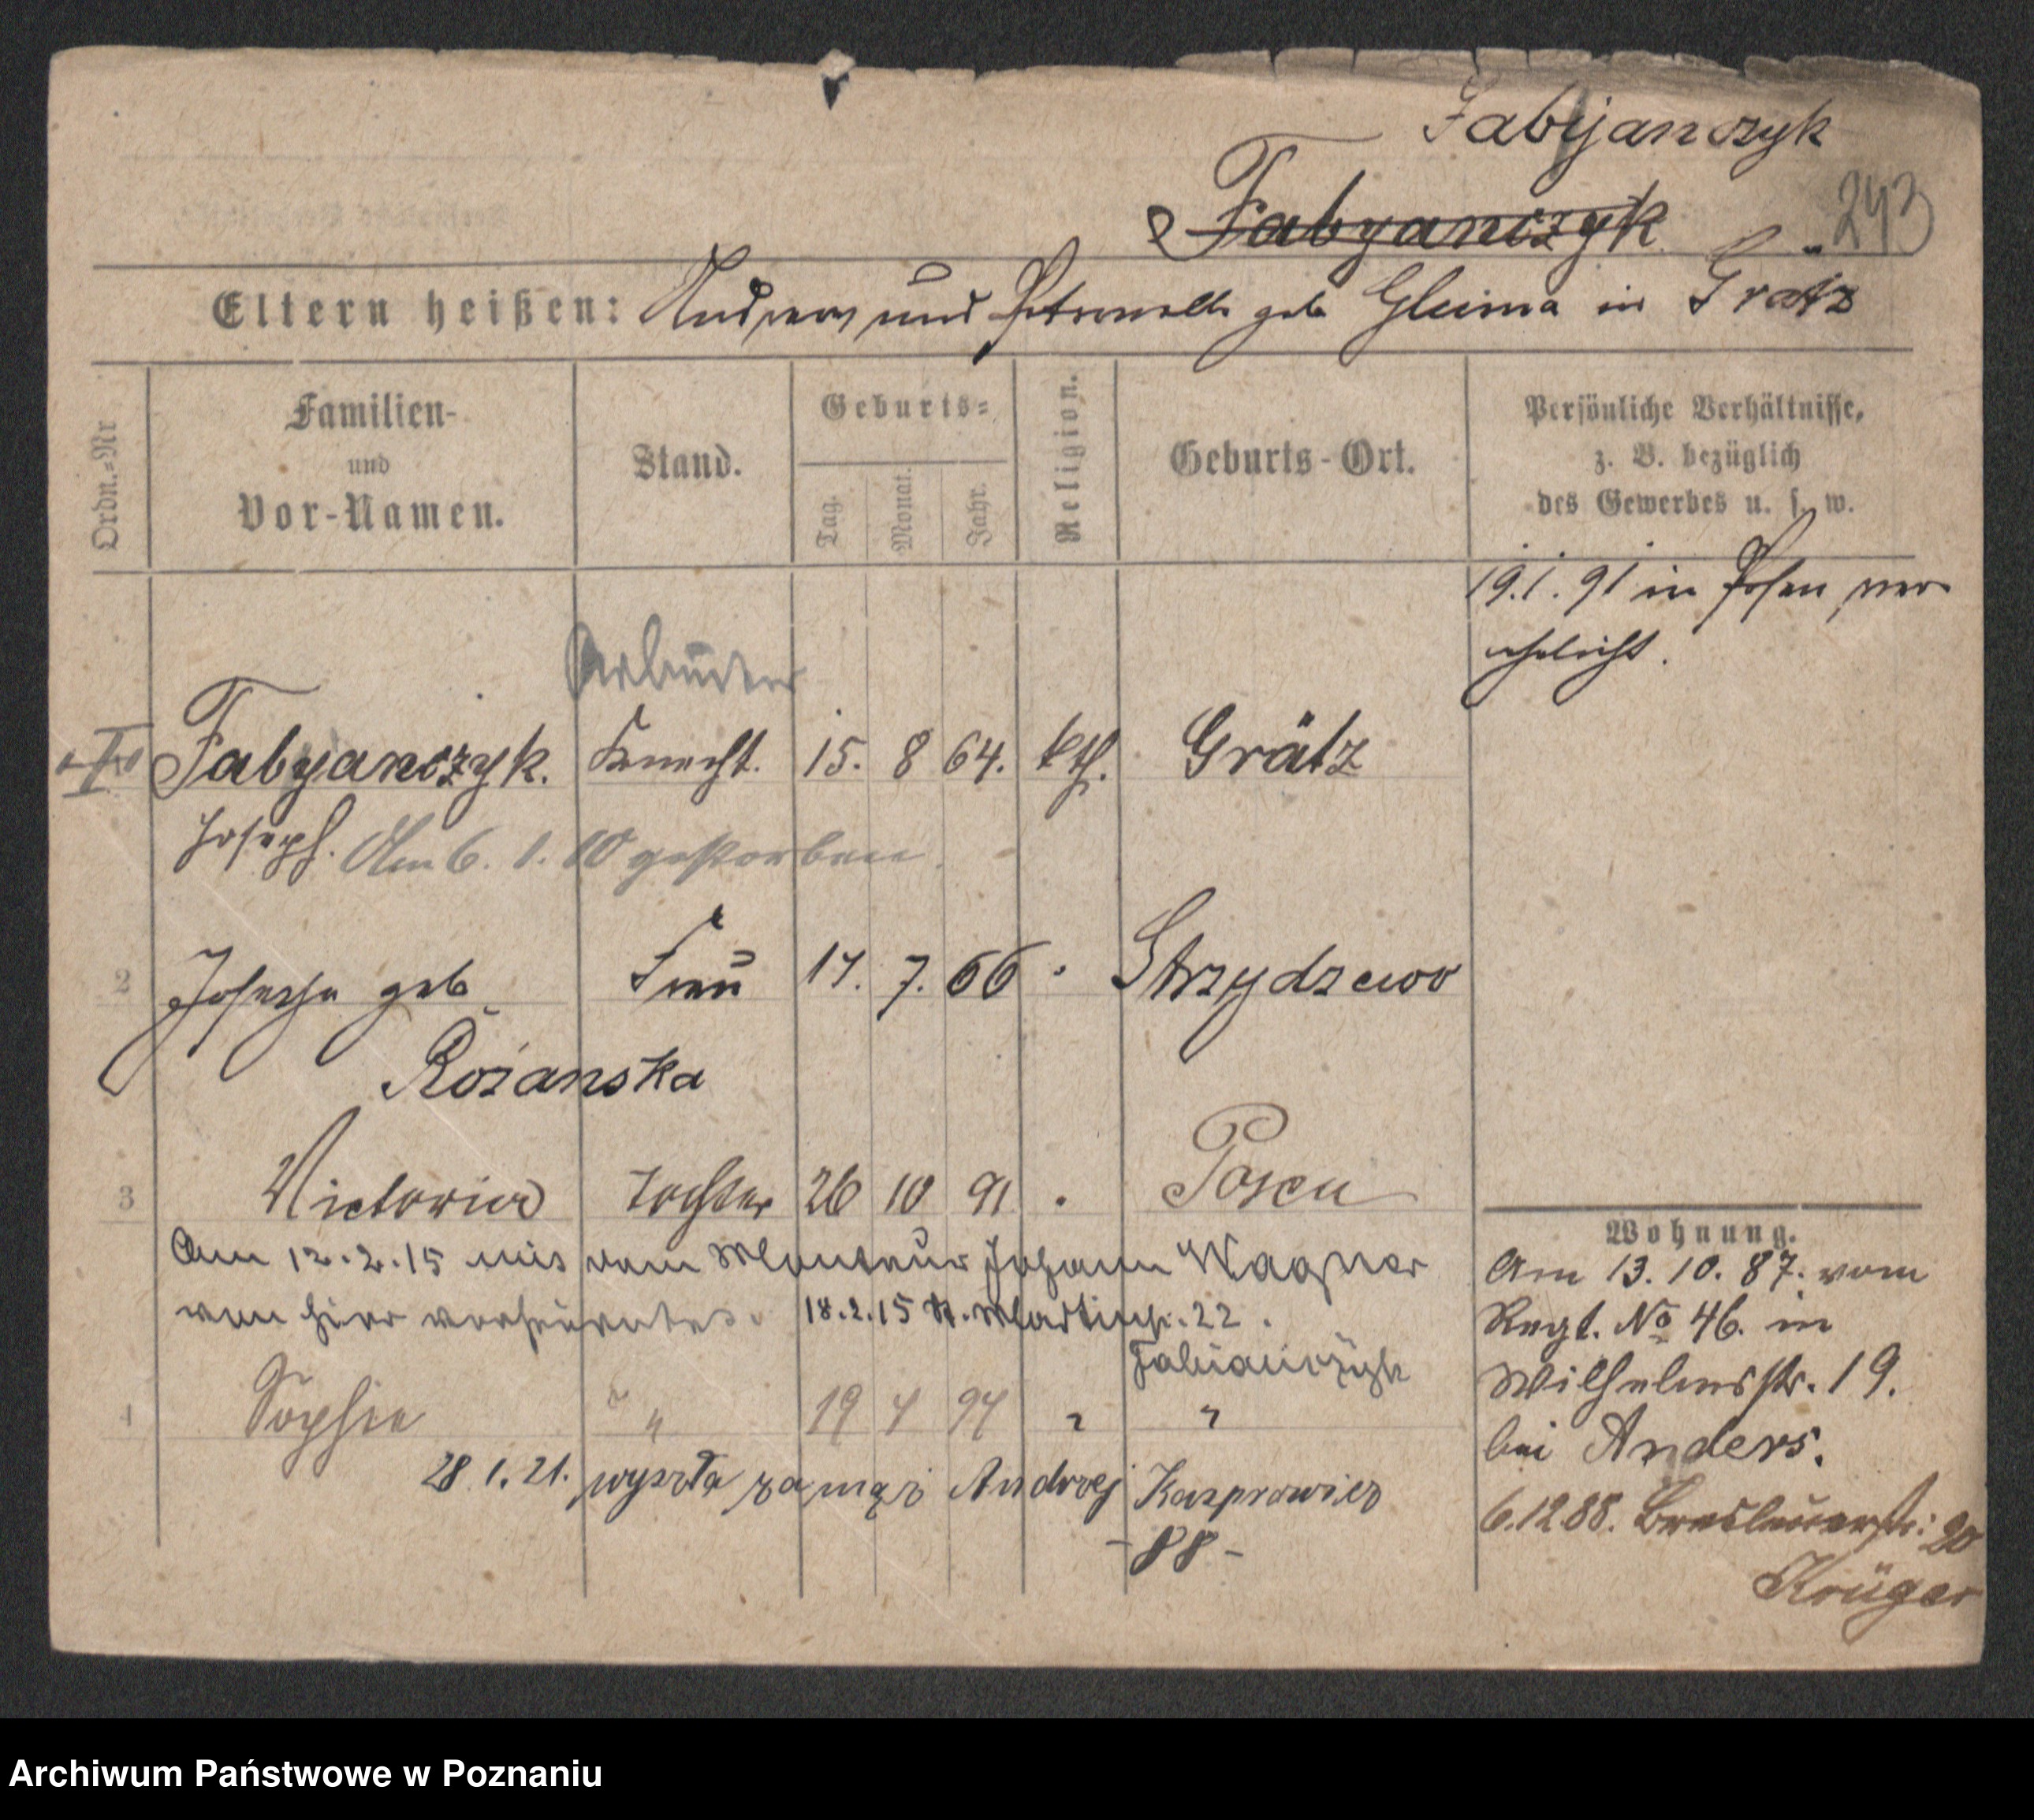 Fabijanczyk
Fabyanczyk 243
Eltern heißen: Andreas und Petronella geb Gleima in Grätz
Ordn.-Nr
Familien-
und
Vor-Namen.
Stand.
Geburts-
Tag.
Monat.
Jahr.
Religion.
Geburts-Ort.
Persönliche Verhältnisse,
z. B. bezüglich
des Gewerbes u. s. w.
19.1.91 in Posen ver
ehelicht.
Arbeiter
Fabyanczyk. Knecht. 15. 8 64. kth. Grätz
Joseph. Am 6. 1. 10 gestorben.
2 Josepha geb Frau 17. 7. 66 Strzydzewo
Rozanska
3 Victoria Tochter 26 10 91 Posen
Am 12.2.15 mit dem Monteur Johann Wagner
von hier verheiratet. 18.2.15 St. Martinstr. 22.
Fabianczyk
4 Sophie " 19 4 94 " "
28.1.21. wyszła za mąż Andrzej Kasprowicz
-88-
Wohnung.
Am 13.10.87. vom
Regt. No 46. in
Wilhelmsstr. 19.
bei Anders.
6.12 88. Breslauerstr: 20
Krüger
Archiwum Państwowe w Poznaniu